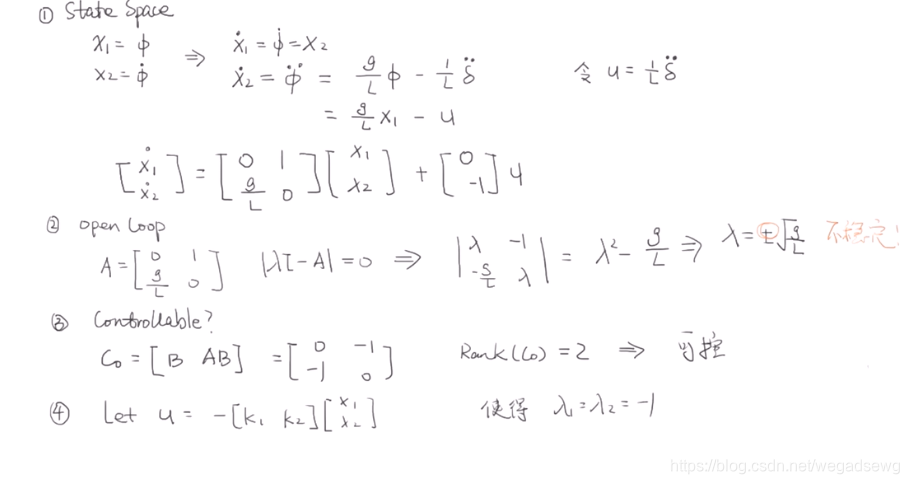 ① State Space
x₁ = ϕ ⇒ ẋ₁ = ϕ̇ = x₂
x₂ = ϕ̇ ẋ₂ = ϕ̈ = g/L ϕ - 1/L δ̈ 令 u = 1/L δ̈
= g/L x₁ - u
[ẋ₁ ẋ₂] = [0 1 g/L 0] [x₁ x₂] + [0 -1] u
② open loop
A = [0 1 g/L 0] |λI - A| = 0 ⇒ |λ -1 -g/L λ| = λ² - g/L ⇒ λ = ±√g/L 不稳定!
③ Controllable?
Co = [B AB] = [0 -1 -1 0] Rank(Co) = 2 ⇒ 可控
④ Let u = -[k₁ k₂] [x₁ x₂] 使得 λ₁ = λ₂ = -1
https://blog.csdn.net/wegadsewg